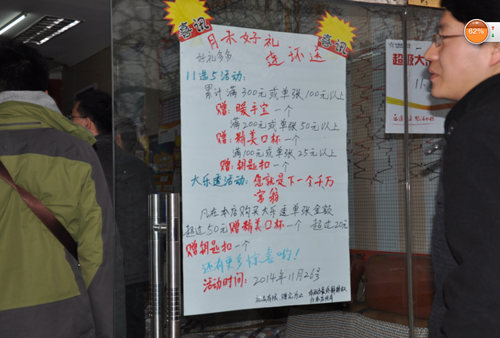 喜讯
喜讯
月末好礼
好礼多多
送环送
11选5活动:
累计满300元或单张100元以上
赠:暖手宝一个
满200元或单张50元以上
赠:精美口杯一个
满100元或单张25元以上
赠:钥匙扣一个
大乐透活动:您就是下一个千万
富翁
凡在本店购买大乐透单张金额
超过50元赠精美口杯一个 超过20元
赠钥匙扣一个
还有更多惊喜哟!
活动时间:2014年11月26号
超级大
62%